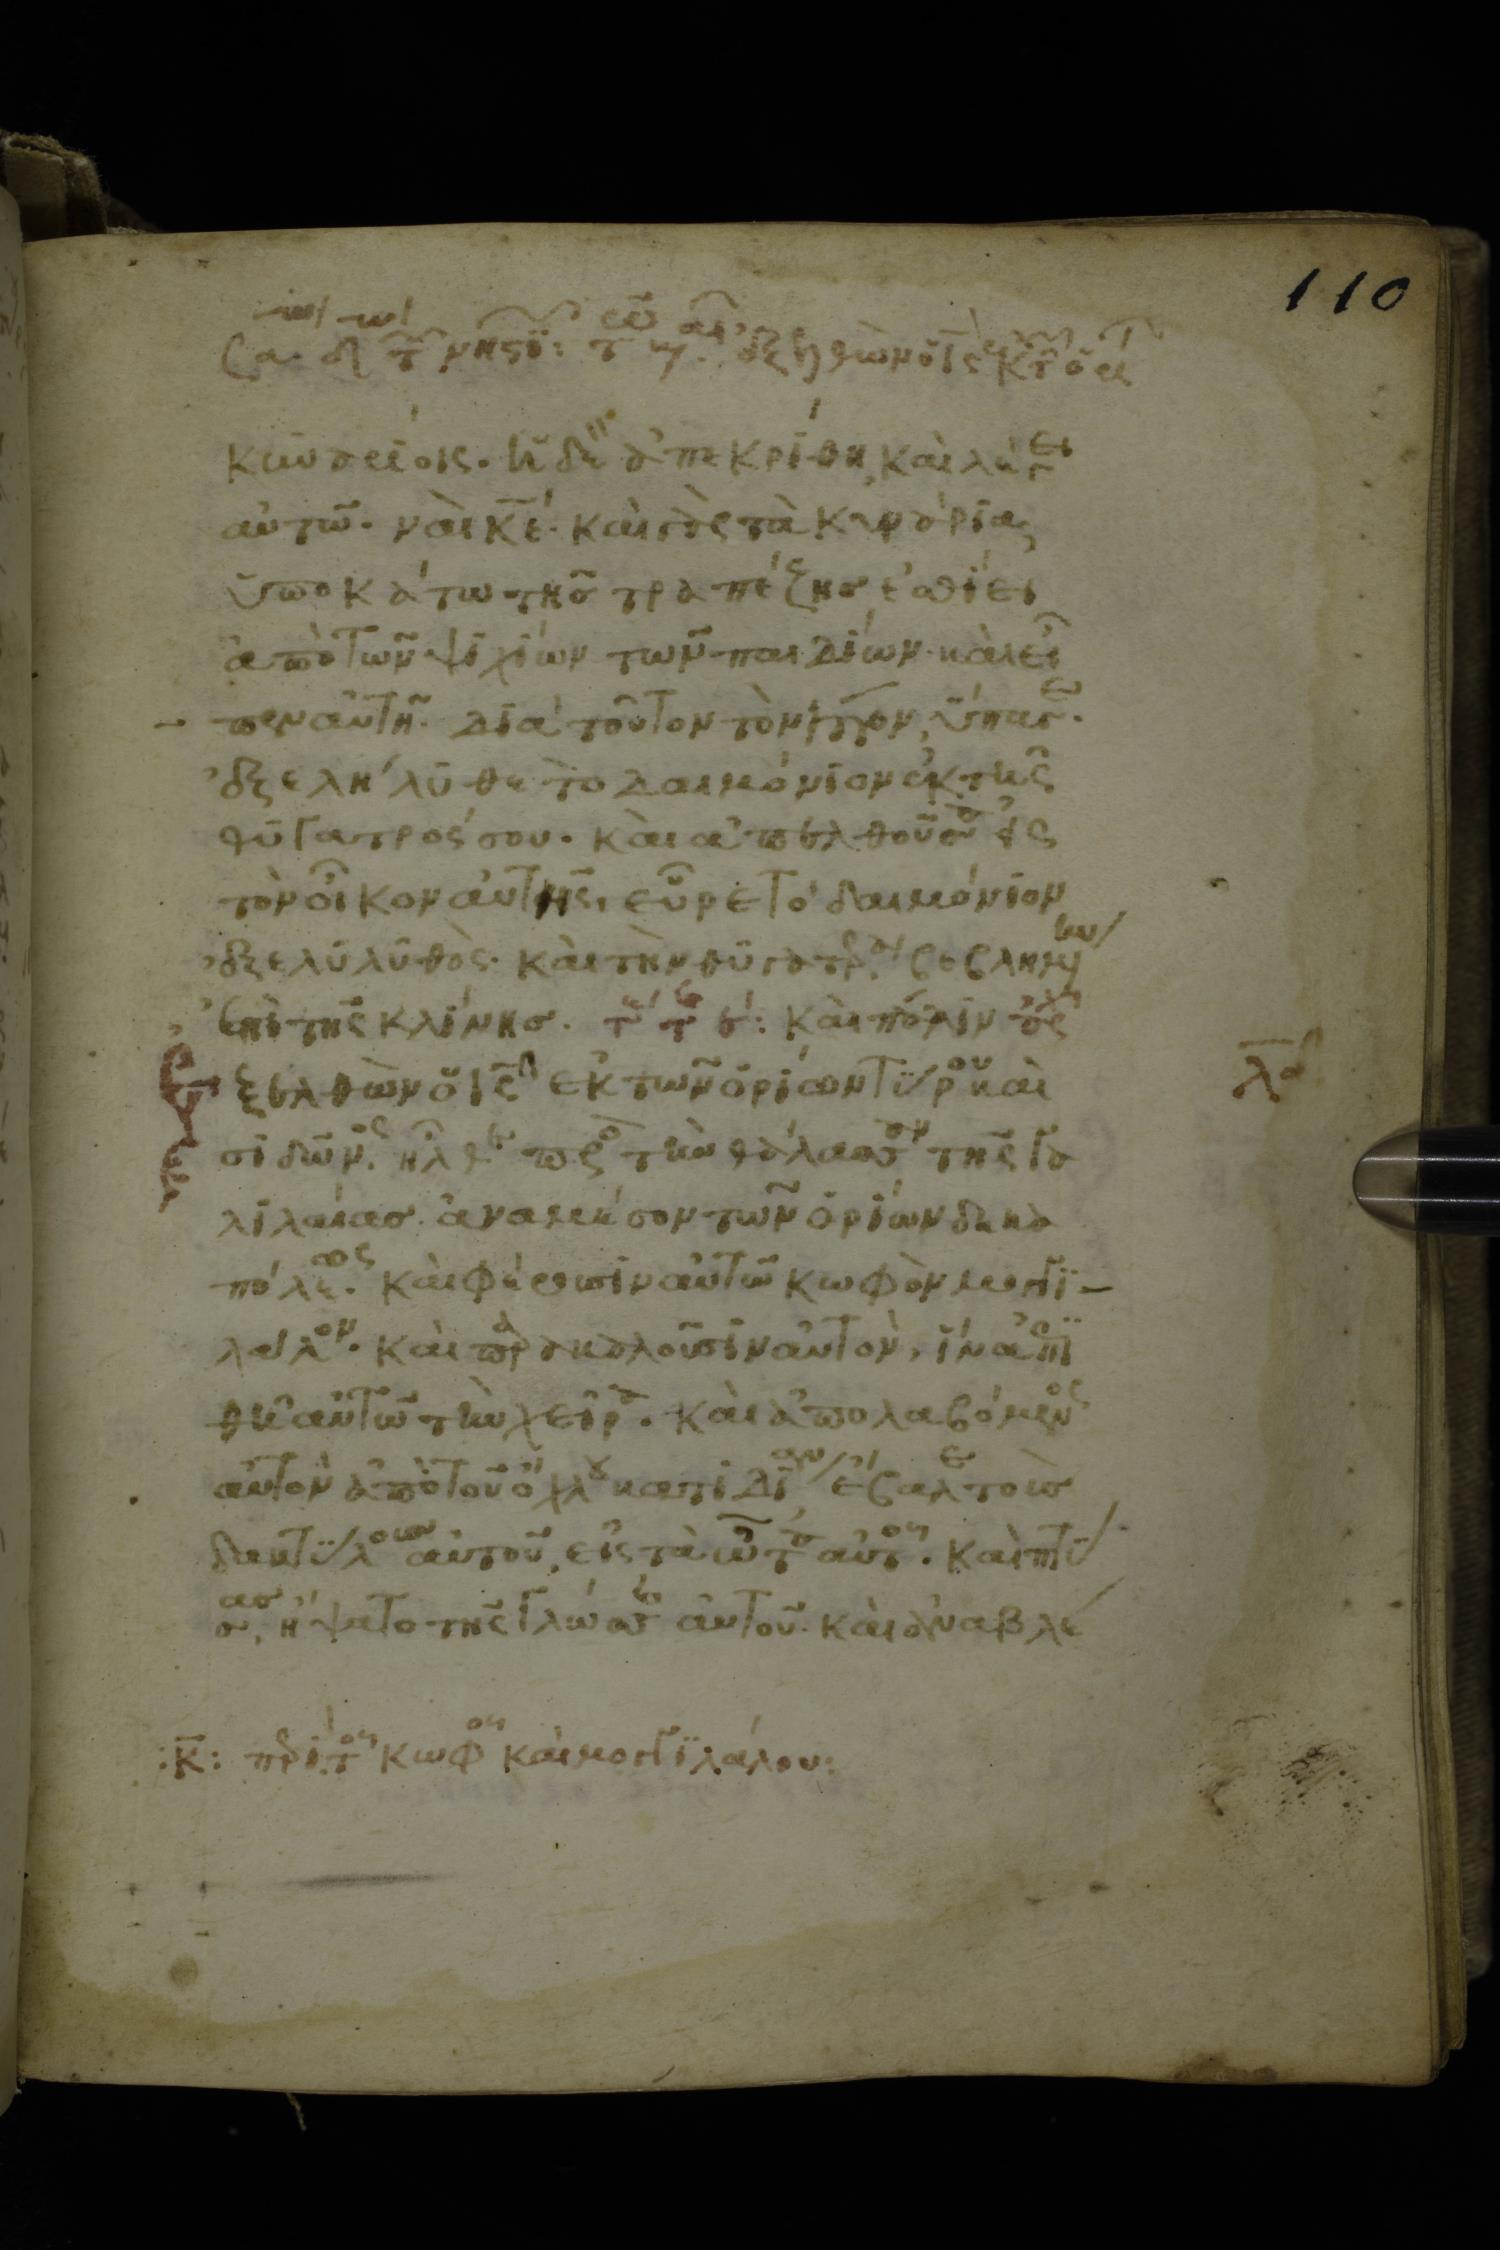 110
κυναρίοις. ἡ δὲ ἀπεκρίθη καὶ λέγει
αὐτῶ. ναὶ κ̅ε̅. καὶ γὰρ τὰ κυνάρια
ὑποκάτω τῆσ τραπέζησ ἐσθίει
ἀπὸ τῶν ψιχίων τῶν παιδίων. καὶ εἶ
πεν αὐτῆ. διὰ τοῦτον τὸν λόγον, ὕπαγε.
ἐξελήλυθε τὸ δαιμόνιον ἐκ τῆς
θυγατρός σου. καὶ ἀπελθοῦσα εἰς
τὸν οἶκον αὐτῆς, εὗρε τὸ δαιμόνιον
ἐξελυλυθὸς. καὶ τὴν θυγατρα βεβλημένην
ἐπὶ τῆς κλίνησ. καὶ πάλιν
ξελθὼν ὁ ι̅ς̅ ἐκ τῶν ὁρίων τύρου καὶ
σιδῶνος. ἦλθε πρὸς τὴν θάλασσαν τῆς γα
λιλαίασ. ἀναμέσον τῶν ὁρίων δεκα
πόλεως. καὶ φέρουσιν αὐτῶ κωφὸν μογγι
λάλον. καὶ παρακαλοῦσιν αὐτὸν, ἵνα ἐπι
θῆ αὐτῶ τὴν χεῖρα. καὶ ἀπολαβόμενος
αὐτὸν ἀπὸ τοῦ ὄχλου κατιδίαν, ἔβαλε τοὺσ
δακτύλους αὐτοῦ, εἰς τὰ ὦτα αὐτοῦ. καὶ πτύ
σασ, ἥψατο τῆς γλώσσης αὐτοῦ. καὶ ἀναβλέ
λα
κ̅: περὶ τοῦ κωφοῦ καὶ μογγιλάλου: